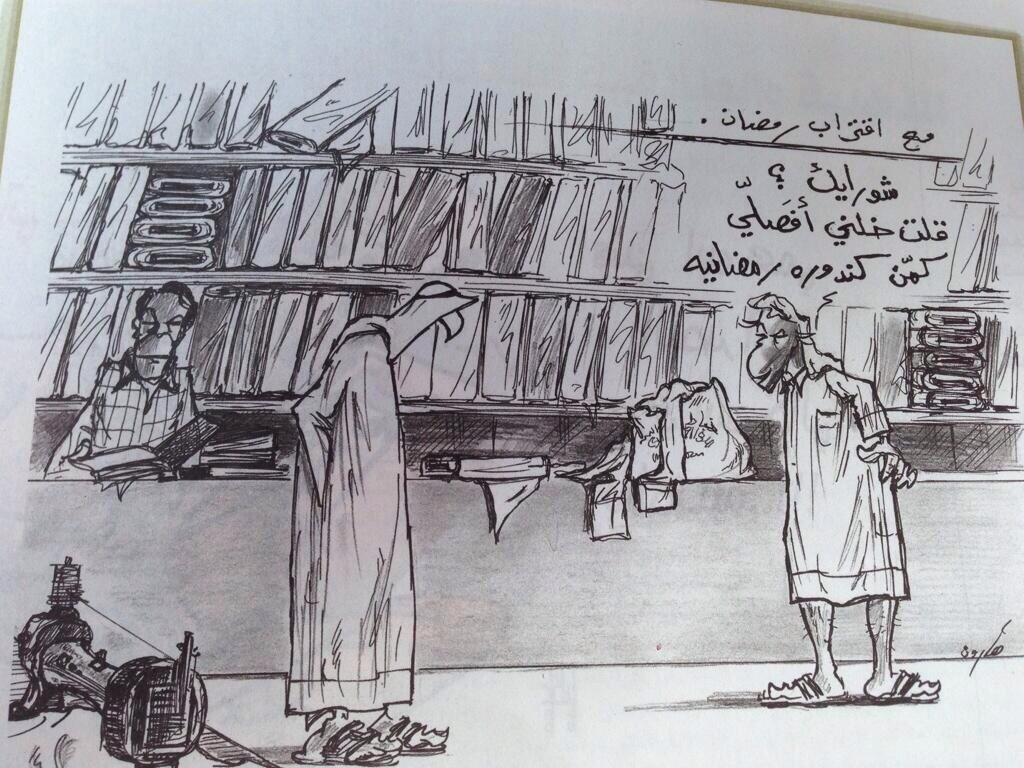 مع اقتراب رمضان .
شو رايك ؟
قلت خلني أفصلّي
كمّن كندوره رمضانيه
هارون